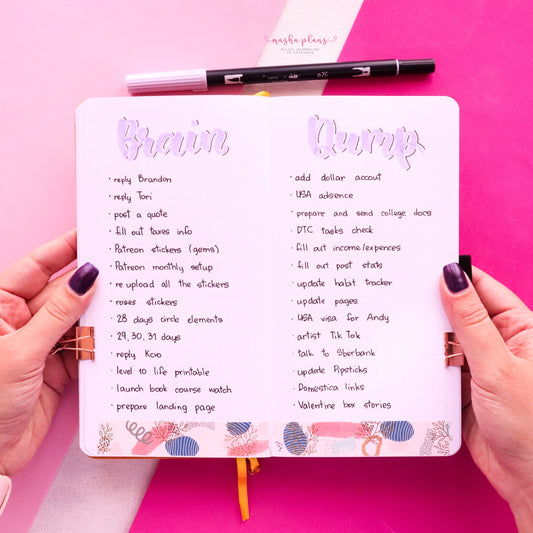 masha plans
BULLET JOURNALING
TO HAPPINESS
620
Brain
· reply Brandon
· reply Tori
· post a quote
· fill out taxes info
· Patreon stickers (gems)
· Patreon monthly setup
· re upload all the stickers
· roses stickers
· 28 days circle elements
· 29, 30, 31 days
· reply Kcro
· level 10 life printable
· launch book course watch
· prepare landing page
Dump
· add dollar accout
· USA adsence
· prepare and send college docs
· DTC tasks check
· fill out income/expences
· fill out post stats
· update habit tracker
· update pages
· USA visa for Andy
· artist Tik Tok
· talk to Sberbank
· update Pipsticks
· Domestica links
· Valentine box stories